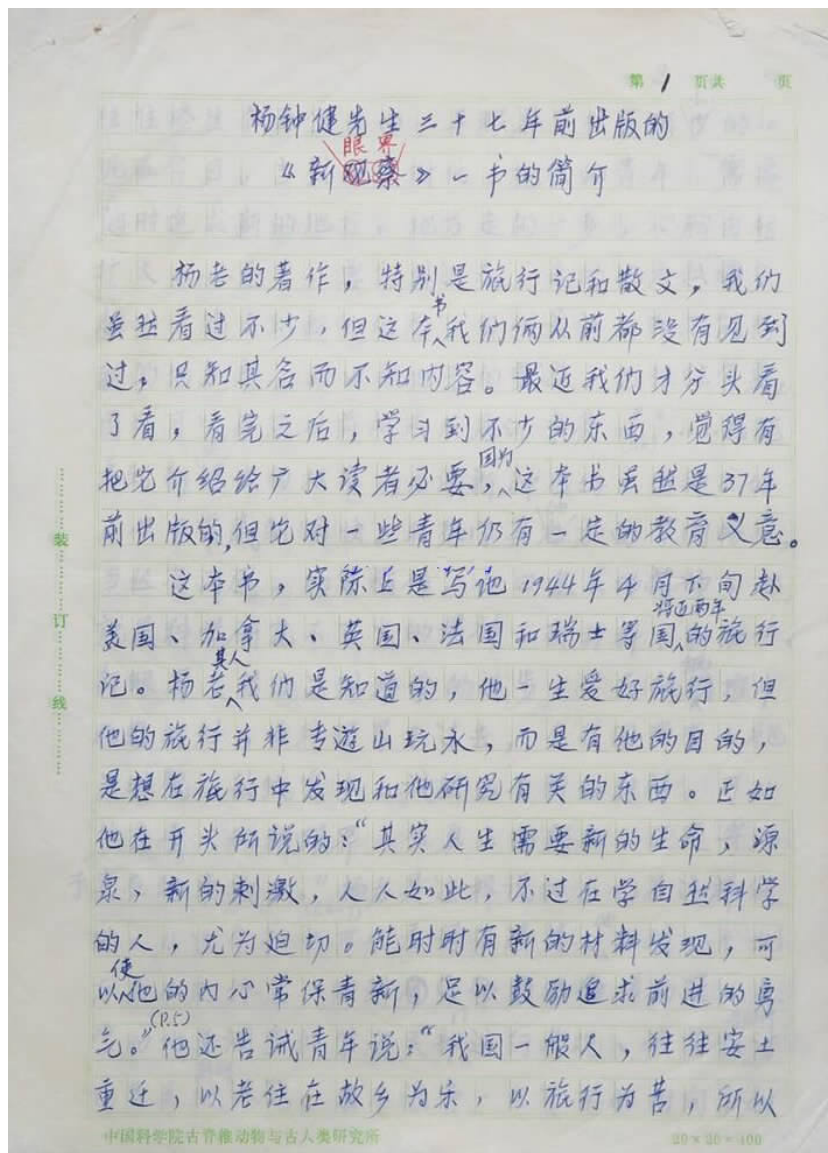 第 1 页共 页
杨钟健先生三十七年前出版的
眼界
《新观察》一书的简介
杨老的著作，特别是旅行记和散文，我们
虽然看过不少，但这本书我们俩从前都没有见到
过，只知其名而不知内容。最近我们才分头看
了看，看完之后，学习到不少的东西，觉得有
把它介绍给广大读者必要，因为这本书虽然是37年
前出版的，但它对一些青年仍有一定的教育义意。
这本书，实际上是写他1944年4月下旬赴
美国、加拿大、英国、法国和瑞士等国将近两年的旅行
记。杨老其人我们是知道的，他一生爱好旅行，但
他的旅行并非专遊山玩水，而是有他的目的，
是想在旅行中发现和他研究有关的东西。正如
他在开头所说的：“其实人生需要新的生命，源
泉，新的刺激，人人如此，不过在学自然科学
的人，尤为迫切。能时时有新的材料发现，可
以使他的内心常保青新，足以鼓励追求前进的勇
气。”(P.5)他还告诫青年说：“我国一般人，往往安土
重迁，以老住在故乡为乐，以旅行为苦，所以
装订线
中国科学院古脊椎动物与古人类研究所
20×20=400